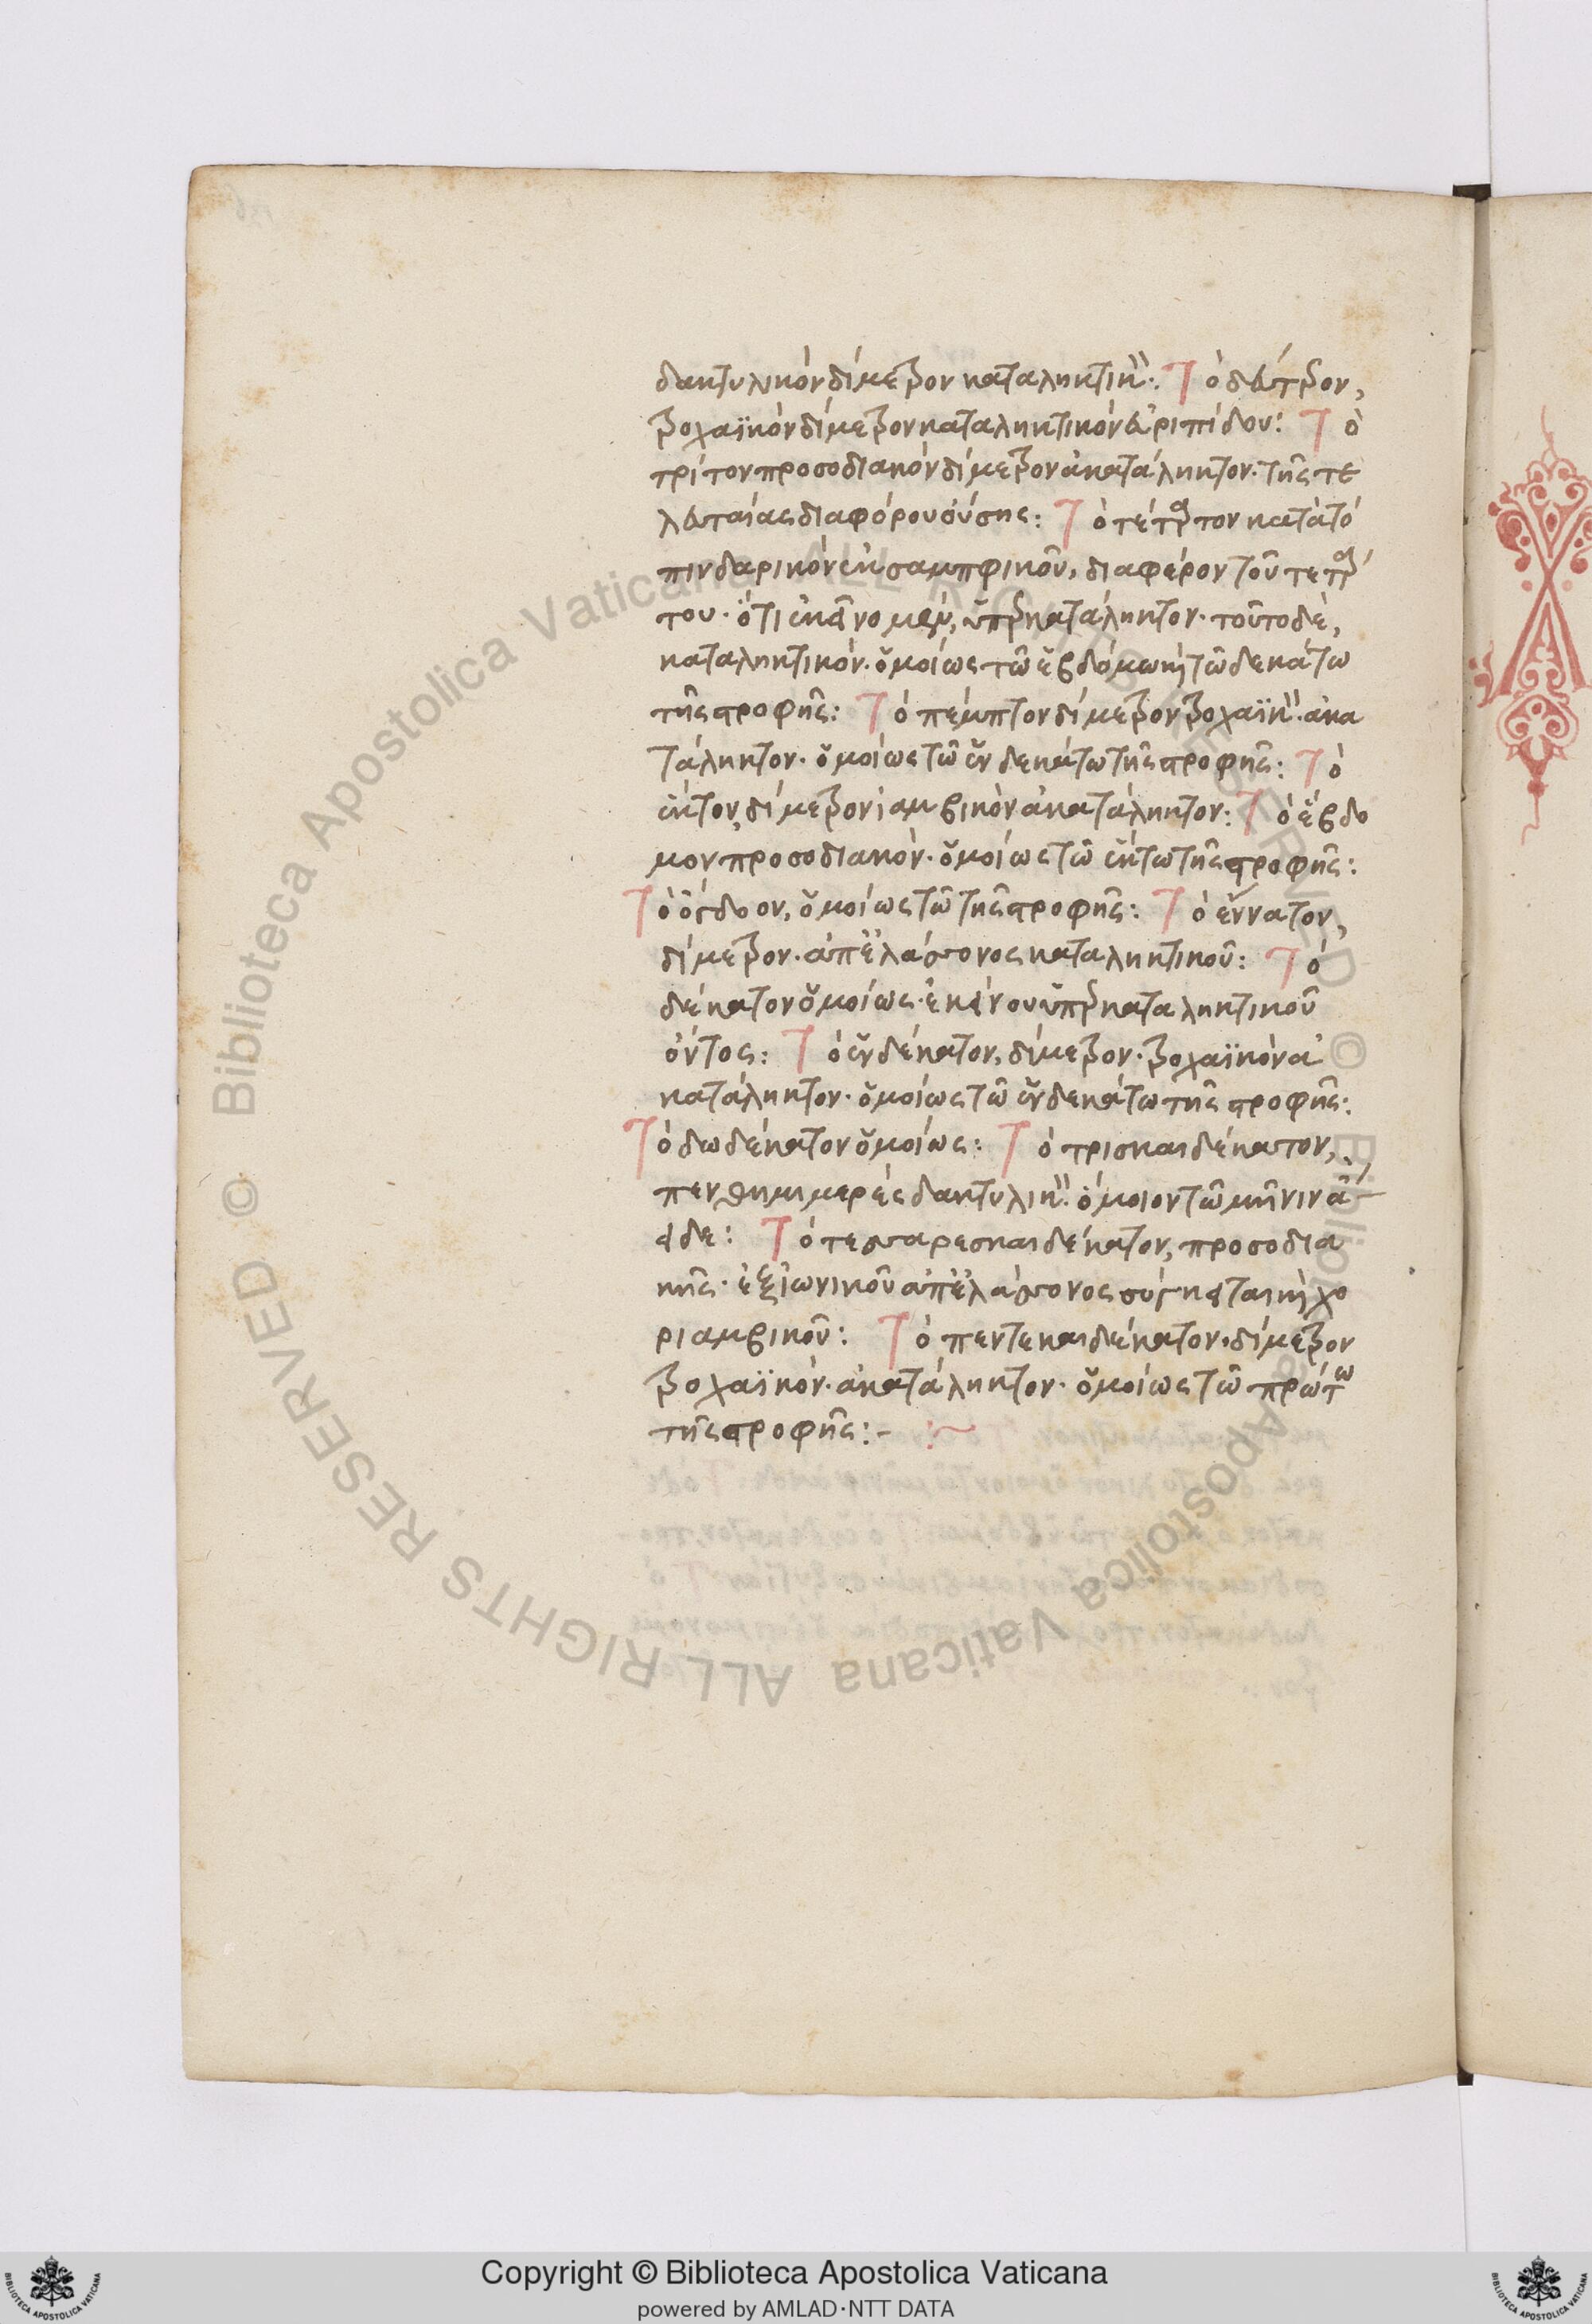 δακτυλικὸν δίμετρον καταληκτικ̀. Τὸ δεύτερον,
τροχαϊκὸν δίμετρον καταληκτικὸν εὐριπίδου: Τὸ
τρίτον προσοδιακὸν δίμετρον ἀκατάληκτον. τῆς τε
λευταίας διαφόρου οὔσης: Τὸ τέταρτον κατὰ τὸ
πινδαρικὸν ἐκ σαμπφικοῦ, διαφέρον τοῦ τετάρ
του. ὅτι ἐκεῖνο μὲν, ὑπερκατάληκτον. τοῦτο δὲ,
καταληκτικόν. ὁμοίως τῶ ἑβδόμω καὶ τῶ δεκάτω
τῆς στροφῆς: Τὸ πέμπτον δίμετρον τροχαϊκ̀. ἀκα
τάληκτον. ὁμοίως τῶ ἑνδεκάτω τῆς στροφῆς: Τὸ
ἕκτον, δίμετρον ἰαμβικὸν ἀκατάληκτον: Τὸ ἕβδο
μον προσοδιακόν. ὁμοίως τῶ ἕκτω τῆς στροφῆς:
Τὸ ὄγδοον, ὁμοίως τῶ τῆς στροφῆς: Τὸ ἔννατον,
δίμετρον. ἀπ' ἐλάσσονος καταληκτικοῦ: Τὸ
δέκατον ὁμοίως. ἐκείνου ὑπερκαταληκτικοῦ
ὄντος: Τὸ ἑνδέκατον, δίμετρον. τροχαϊκὸν ἀ
κατάληκτον. ὁμοίως τῶ ἑνδεκάτω τῆς στροφῆς:
Τὸ δωδέκατον ὁμοίως: Τὸ τρισκαιδέκατον,
πενθημιμερὲς δακτυλικ̀. ὅμοιον τῶ μῆνιν ἄ
ειδε: Τὸ τεσσαρεσκαιδέκατον, προσοδια
κῆς. ἐξ ἰωνικοῦ ἀπ' ἐλάσσονος σύγκειται καὶ χο
ριαμβικοῦ: Τὸ πεντεκαιδέκατον. δίμετρον
τροχαϊκόν. ἀκατάληκτον. ὁμοίως τῶ πρώτω
τῆς στροφῆς:- :~
Copyright © Biblioteca Apostolica Vaticana
powered by AMLAD·NTT DATA
© Biblioteca Apostolica Vaticana ALL RIGHTS RESERVED © Biblioteca Apostolica Vaticana ALL RIGHTS RESERVED